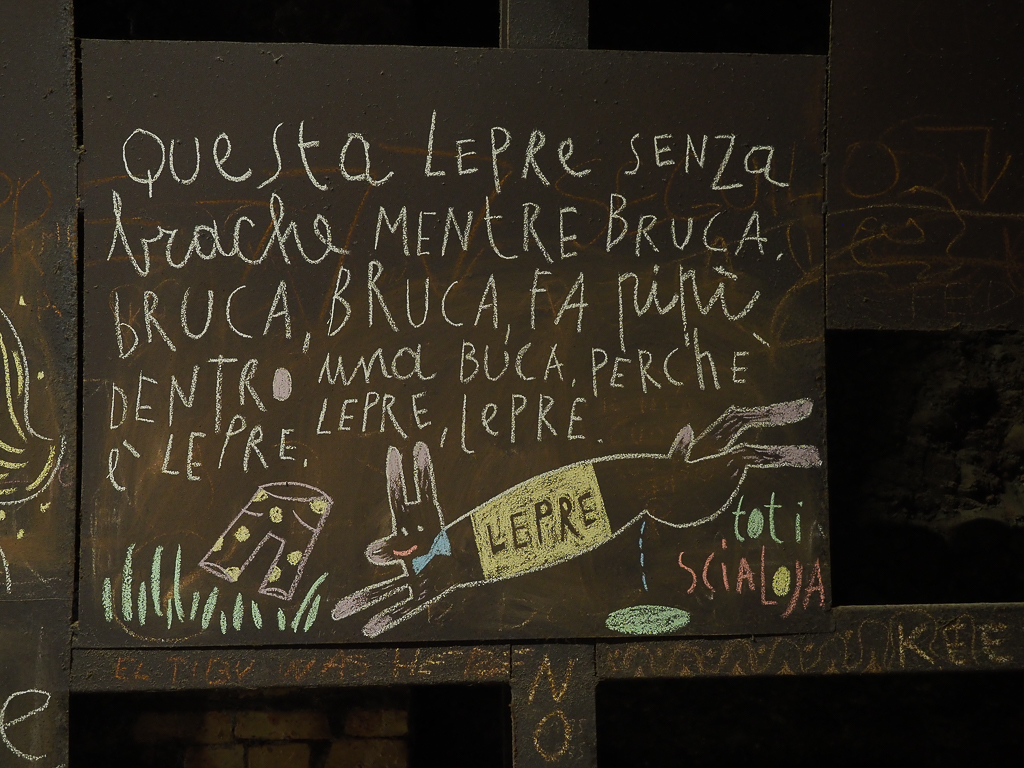 Questa LEPRE SENZA
brache MENTRE BRUCA.
BRUCA, BRUCA, FA pipì
DENTRO una BUCA. PERChè
è LEPRE. LEPRE, LEPRE.
LEPRE
toti
SCIALOJA
KEE
NO
e